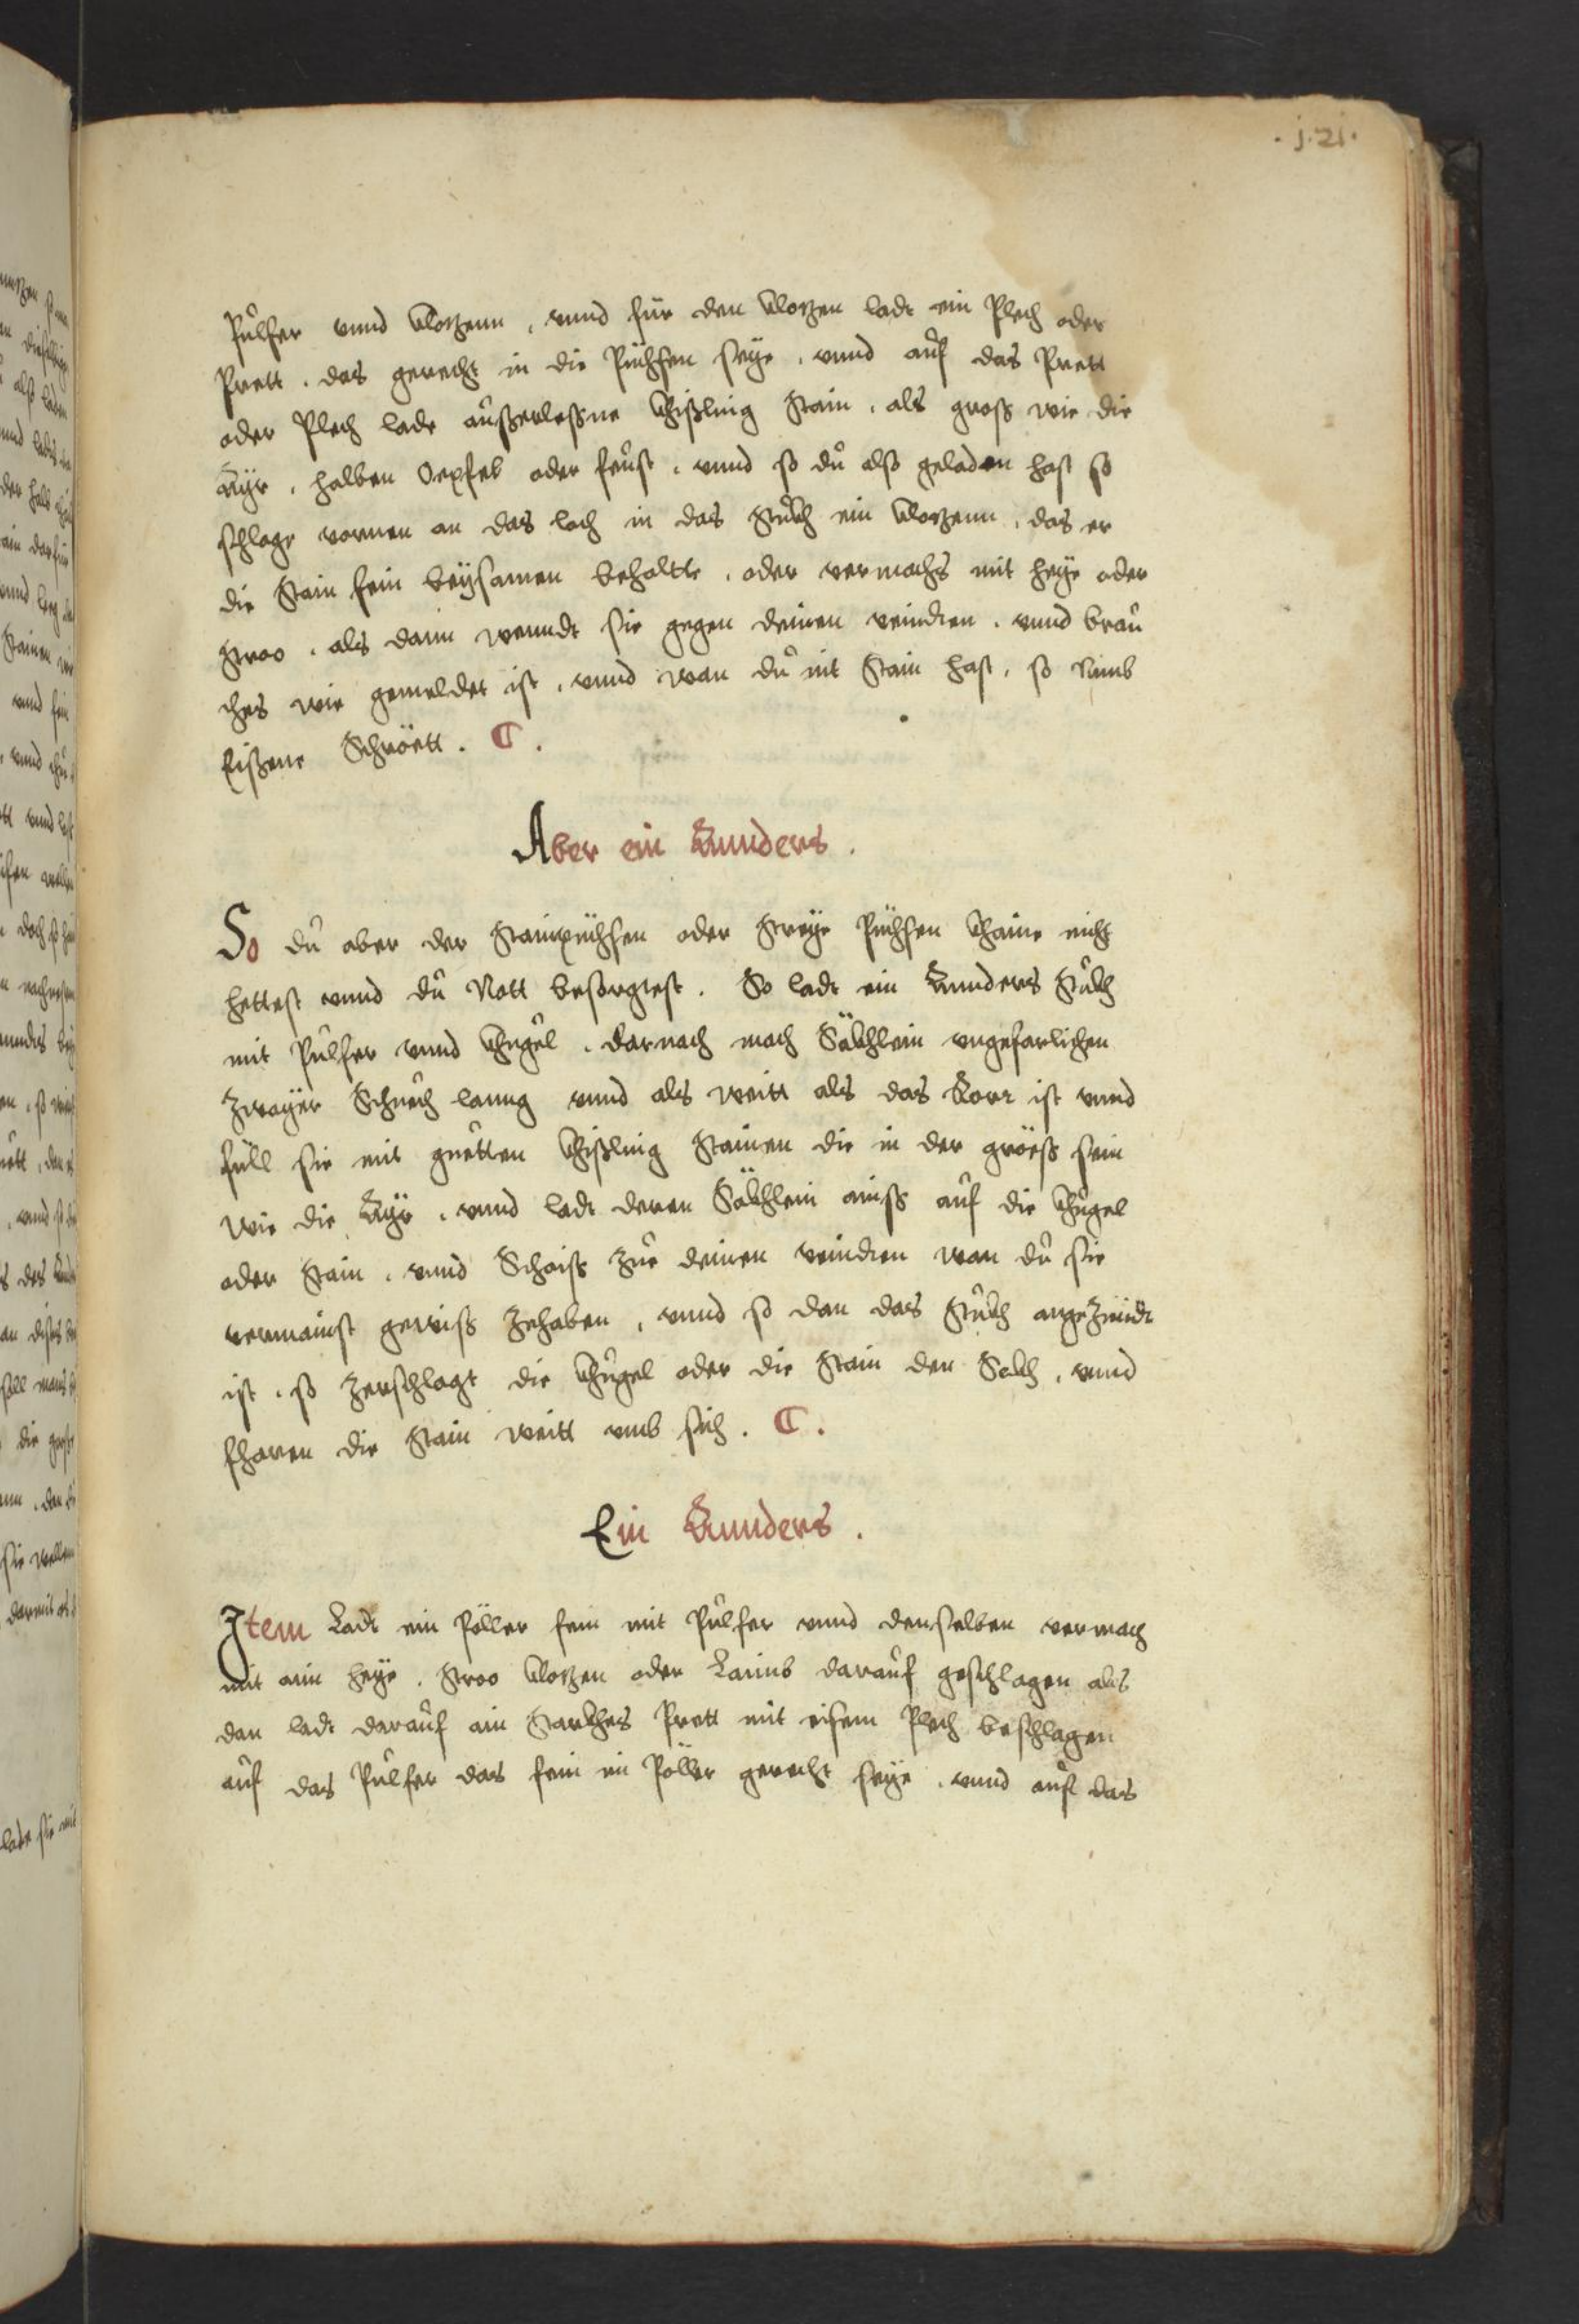 . j.21.
Pulfer vnnd Klotzenn, vnnd für den Klotzen lade ein Plech oder
Prett. das gerecht in die Püchsen seye. vnnd auf das Prett
oder Plech lade außerleßne Khißling Stain. als groß wie die
Ayr. halben Oepfel oder feust. vnnd so du also geladen hast so
schlage vornen an das loch in das Stukh ein Klotzenn. das er
die Stain fein beysamen behaltte. oder vermachs mit heye oder
Stroo. als dann wenndt sie gegen deinen veindten. vnnd brau
ches wie gemeldet ist. vnnd wan du nit Stain hast. so Nimb
Eißene Schröett. C.
Aber ein Annders.
So du aber der Stainpüchsen oder Streye Püchsen Khaine nicht
hettest vnnd du Nott besorgtest. So lade ein Annders Stukh
mit Pulfer vnnd Khugel. darnach mach Säkhlein vngefarlichen
zwayer Schuech lanng vnnd als weitt als das Rorr ist vnnd
füll sie mit guetten Khißling Stainen die in der größ sein
wie die Ayr. vnnd lade deren Säkhlein ainß auf die Khugel
oder Stain. vnnd Scheiß zue deinen veindten wan du sie
vermainst gewiß zehaben, vnnd so dan das Stukh angezündt
ist. so zerschlagt die Khugel oder die Stain den Sakh, vnnd
fharen die Stain weitt vmb sich. C.
Ein Annders.
Item Lade ein Pöller fein mit Pulfer vnnd denselben vermach
mit ain heye. Stroo Klotzen oder Laimb darauf geschlagen als
dan lade darauf ain Starkhes Prett mit eisem Plech beschlagen
auf das Pulfer das fein in Pöller gerecht seye. vnnd auf das